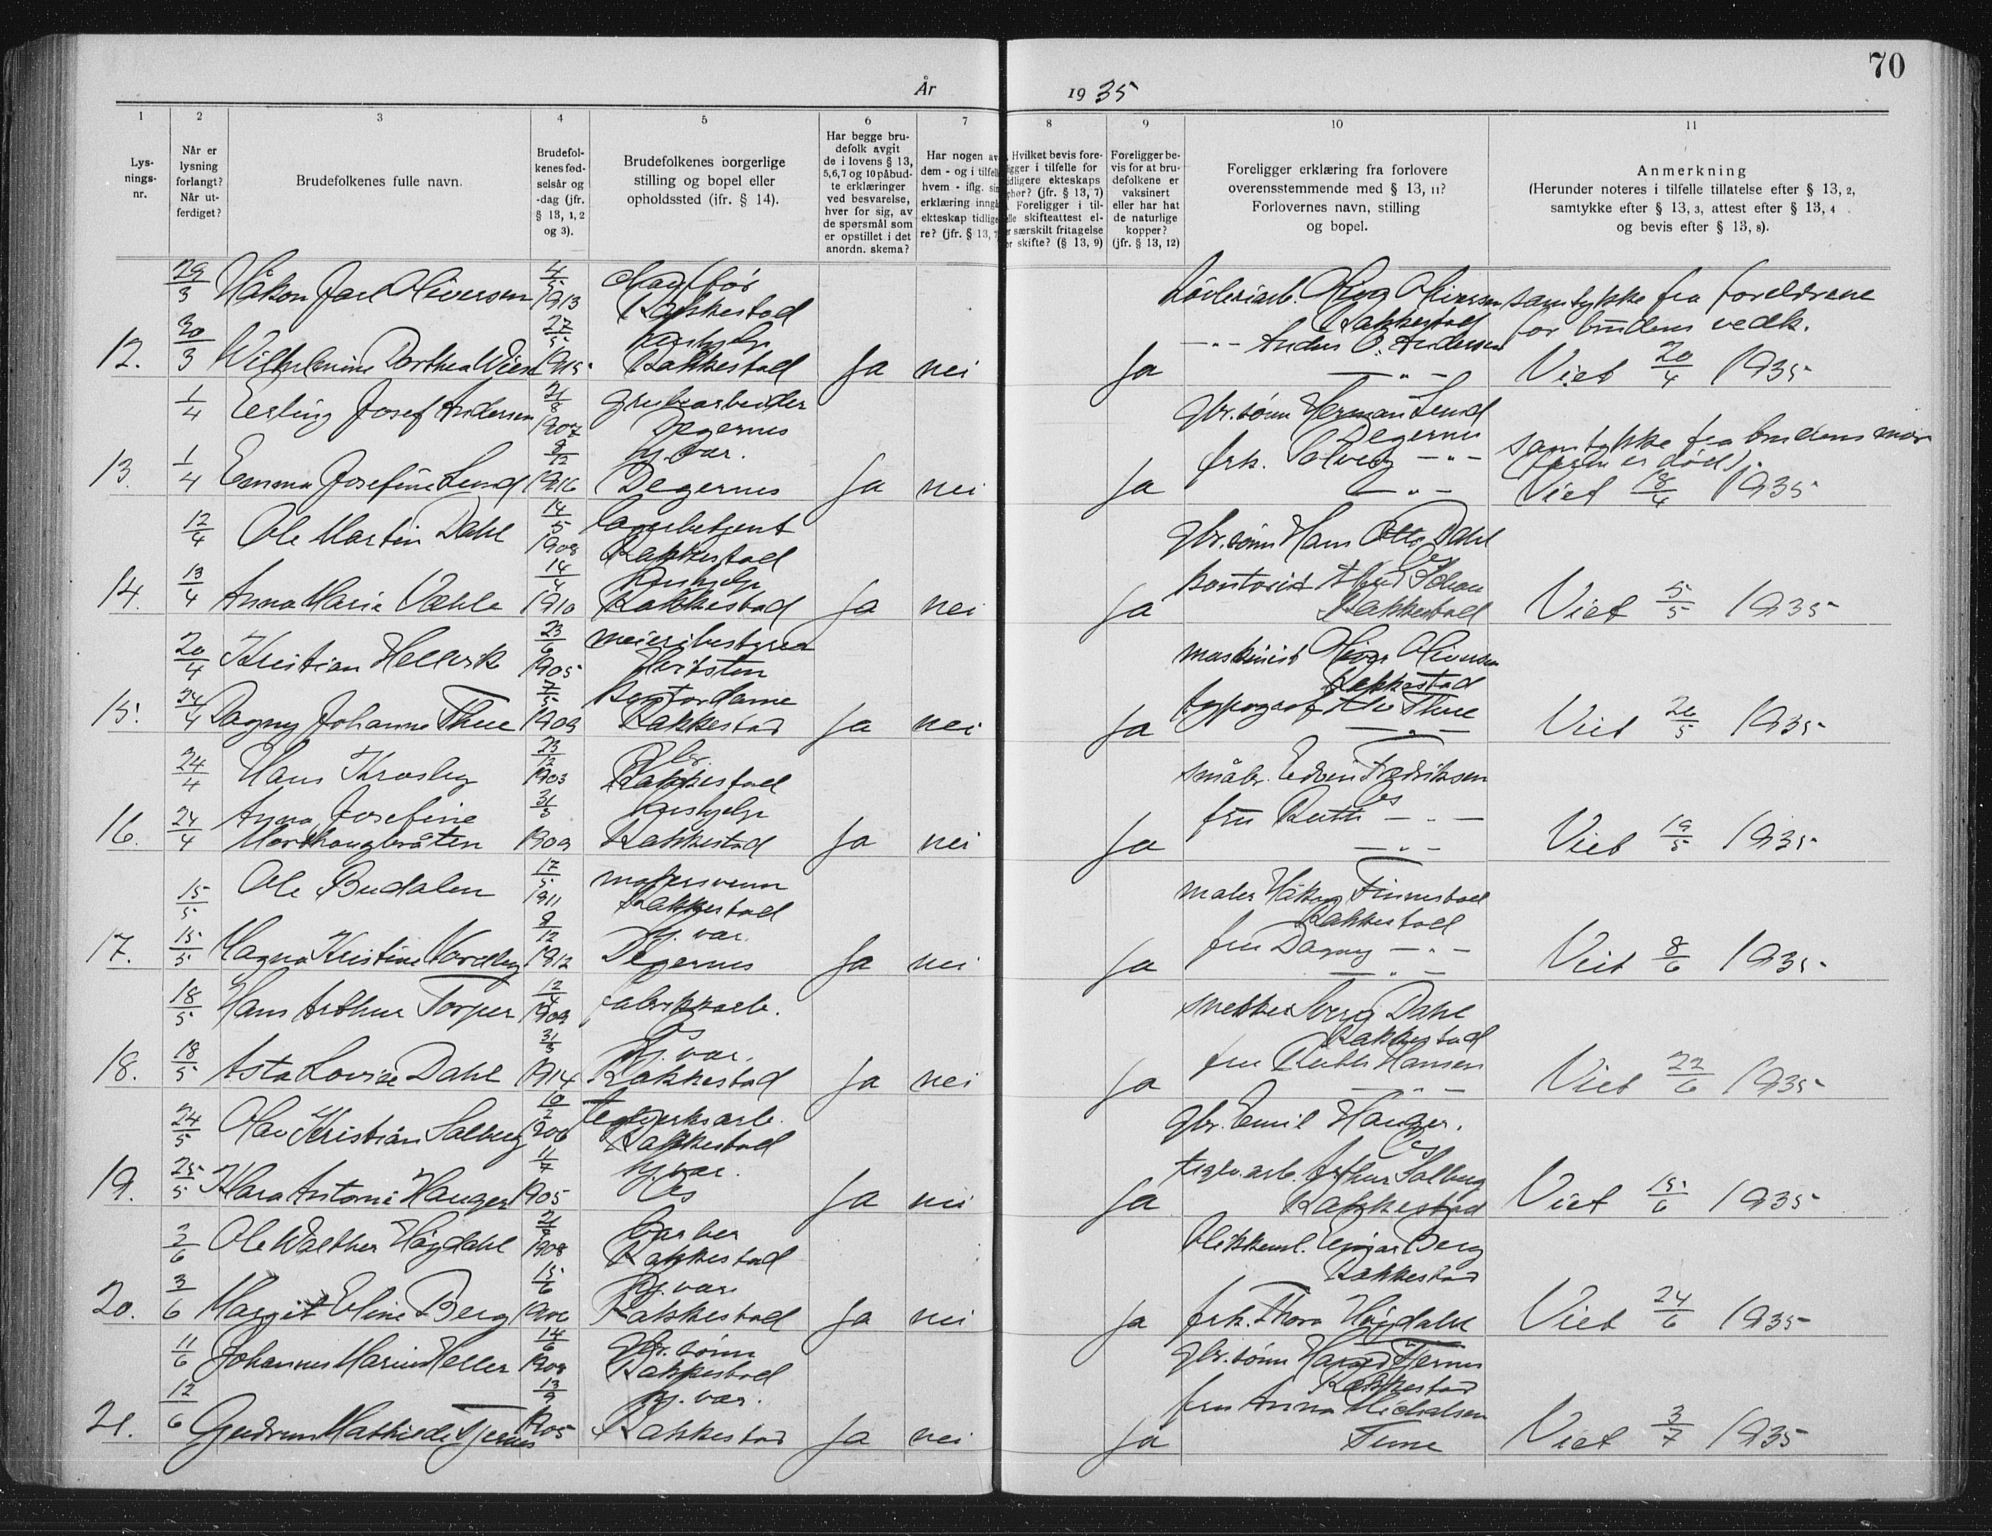 70
År 1935
1 2 3 4 5 6 7 8 9 10 11
Lys-
nings-
nr.
Når er
lysning
forlangt?
Når ut-
ferdiget?
Brudefolkenes fulle navn.
Brudefol-
kenes fød-
selsår og
-dag (jfr.
§ 13, 1, 2
og 3).
Brudefolkenes borgerlige
stilling og bopel eller
opholdssted (jfr. § 14).
Har begge bru-
defolk avgit
de i lovens § 13,
5,6,7 og 10 påbud-
te erklæringer
ved besvarelse,
hver for sig, av
de spørsmål som
er opstillet i det
anordn. skema?
Har nogen av
dem - og i tilfelle
hvem - iflg. sin
erklæring inngått
ekteskap tidlige-
re? (jfr. § 13, 7
Hvilket bevis fore-
ligger i tilfelle for
tidligere ekteskaps
ophør? (jfr. § 13, 7)
Foreligger i til-
felle skifteattest el-
ler særskilt fritagelse
for skifte? (§ 13, 9)
Foreligger be-
vis for at bru-
defolkene er
vaksinert
eller har hat
de naturlige
kopper?
(jfr. § 13, 12)
Foreligger erklæring fra forlovere
overensstemmende med § 13, 11?
Forlovernes navn, stilling
og bopel.
Anmerkning
(Herunder noteres i tilfelle tillatelse efter § 13, 2,
samtykke efter § 13, 3, attest efter § 13, 4
og bevis efter § 13, 8).
29/3 Håkon Jarl Oliversen 4/5 1913 Rakkestad
Rakkestad
samtykke fra foreldrene
for brudens vedk.
12. 30/3 Wilhelmine Dorthea Wiese 27/5 1915 hushjelp Rakkestad Ja nei Ja
Anders O. Andersen
Viet 20/4 1935
1/4 Erling Josef Andersen 21/8 1907 grubearbeider
Degernes
gbr.sønn Herman Lund
Degernes
samtykke fra brudens mor
(faren er død).
13. 1/4 Emma Josefine Lund 9/12 1916 hj. var.
Degernes Ja nei Ja
frk. Solveig — " —
Viet 18/4 1935
12/4 Ole Martin Dahl 14/5 1908 lagerbetjent
Rakkestad
gbr.sønn Hans Otto Dahl
Os
14. 13/4 Anna Marie Væhle 14/4 1910 hushjelp
Rakkestad Ja nei Ja
kontorist
Rakkestad
Viet 5/5 1935
20/4 Kristian Hellvik 23/6 1905
Hvitsten
maskinist
Rakkestad
15. 24/4 Dagny Johanne Thue 7/5 1909 kontordame
Rakkestad Ja nei Ja
typograf Thue
— " —
Viet 26/5 1935
24/4 Hans Krosby 23/12 1903 gbr.
Rakkestad
småbr. Edvin Fredriksen
Os
16. 24/4 Anna Josefine
Morthaugbråten 31/3 1909 hushjelp
Rakkestad Ja nei Ja
fru Ruth — " —
— " —
Viet 19/5 1935
15/5 Ole Budalen 17/5 1911 malersvenn
Rakkestad
maler Håkon Finnestad
Rakkestad
17. 15/5 Magna Kristine Nordby 9/12 1912 hj. var.
Degernes Ja nei Ja
fru Dagny — " —
— " —
Viet 8/6 1935
18/5 Hans Arthur Torper 12/4 1909 fabrikkarb.
Os
snekker Dahl
Rakkestad
18. 18/5 Asta Lovise Dahl 31/3 1914 hj. var.
Rakkestad Ja nei Ja
fru Ruth Hansen
— " —
Viet 22/6 1935
24/5 Olav Kristian Salberg 10/2 1906 Teglverksarb.
Rakkestad
gbr. Emil Hauger.
Os
19. 25/5 Klara Antonie Hauger 11/7 1905 hj. var.
Os Ja nei Ja
teglv.arb. Arthur Salberg
Rakkestad
Viet 15/6 1935
3/6 Ole Walther Høgdahl 1908 Garver
Rakkestad
blikkensl. Einar Berg
Rakkestad
20. 3/6 Margit Eline Berg 15/6 1906 hj. var.
Rakkestad Ja nei Ja
frk. Thora Høgdahl
Viet 24/6 1935
11/6 Johannes Marius Heller 14/6 1909 gbr.sønn
Rakkestad
gbr.sønn Harald Tjernes
Rakkestad
21. 12/6 Gudrun Mathilde Tjernes 13/9 1905 hj. var.
Rakkestad Ja nei Ja
fru Anna Michalsen
Tune
Viet 3/7 1935